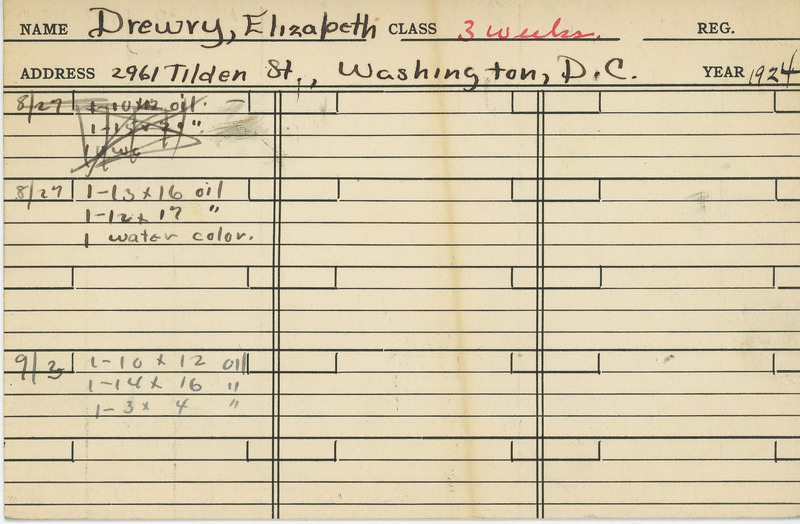 NAME Drewry, Elizabeth CLASS 3 weeks. REG.
ADDRESS 2961 Tilden St., Washington, D.C. YEAR 1924
8/27 1-10x12 oil.
1- "
1
8/27 1-13x16 oil
1-12x17 "
1 water color.
9/2 1-10x12 oil
1-14x16 "
1-3x4 "